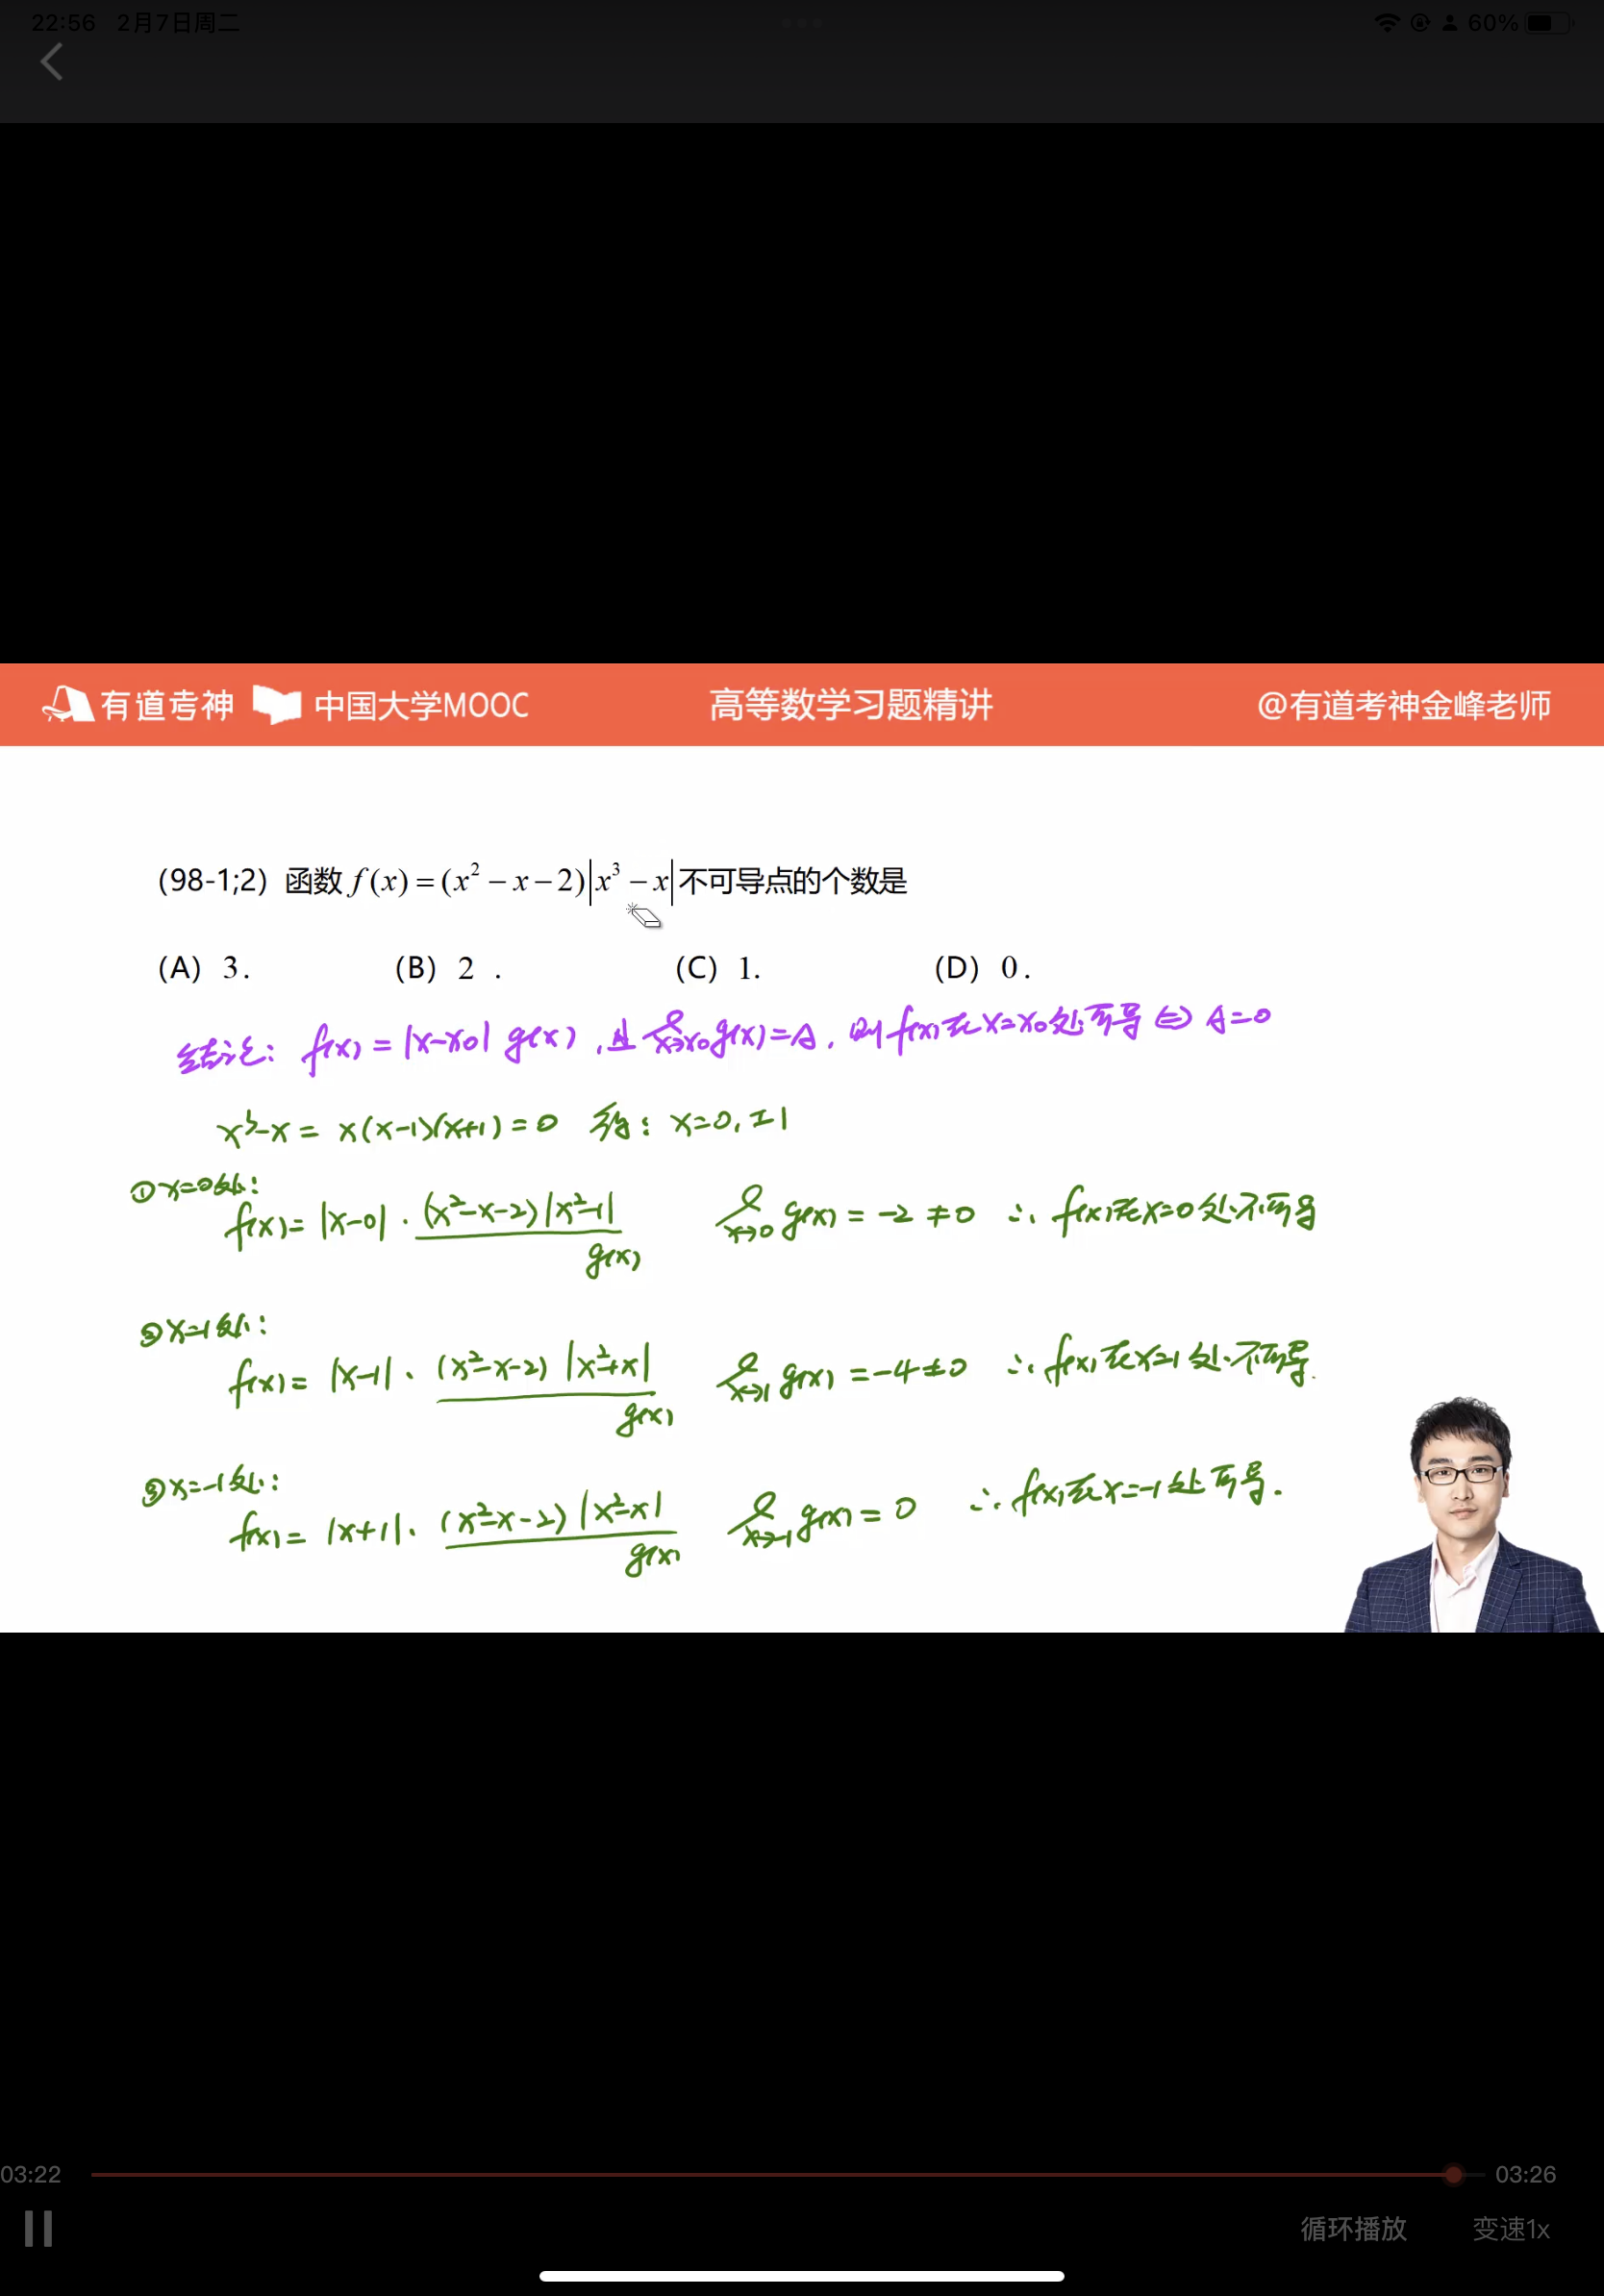 22:56 2月7日周二
60%
有道考神 中国大学MOOC 高等数学习题精讲 @有道考神金峰老师
(98-1;2) 函数 f(x) = (x² − x − 2)|x³ − x| 不可导点的个数是
(A) 3. (B) 2 . (C) 1. (D) 0.
结论: f(x) = |x-x₀| g(x), 且 lim x→x₀ g(x)=A, 则 f(x)在x=x₀处可导 ⇔ A=0
x³-x = x(x-1)(x+1) = 0 得: x=0, ±1
①x=0处:
f(x) = |x-0| · (x²-x-2)|x²-1| lim x→0 g(x) = -2 ≠ 0 ∴ f(x)在x=0处不可导
g(x)
②x=1处:
f(x) = |x-1| · (x²-x-2) |x²+x| lim x→1 g(x) = -4 ≠ 0 ∴ f(x)在x=1处不可导.
g(x)
③x=-1处:
f(x) = |x+1| · (x²-x-2) |x²-x| lim x→-1 g(x) = 0 ∴ f(x)在x=-1处可导.
g(x)
03:22 03:26
循环播放 变速1x